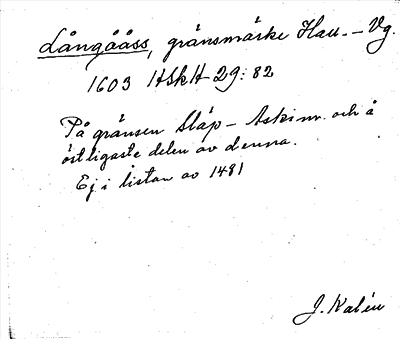 Långååss, gränsmärke Hall. - Vg.
1603 HSkH 29: 82
På gränsen Släp - Askim och å
östligaste delen av denna.
Ej i listan av 1481
J. Kalén